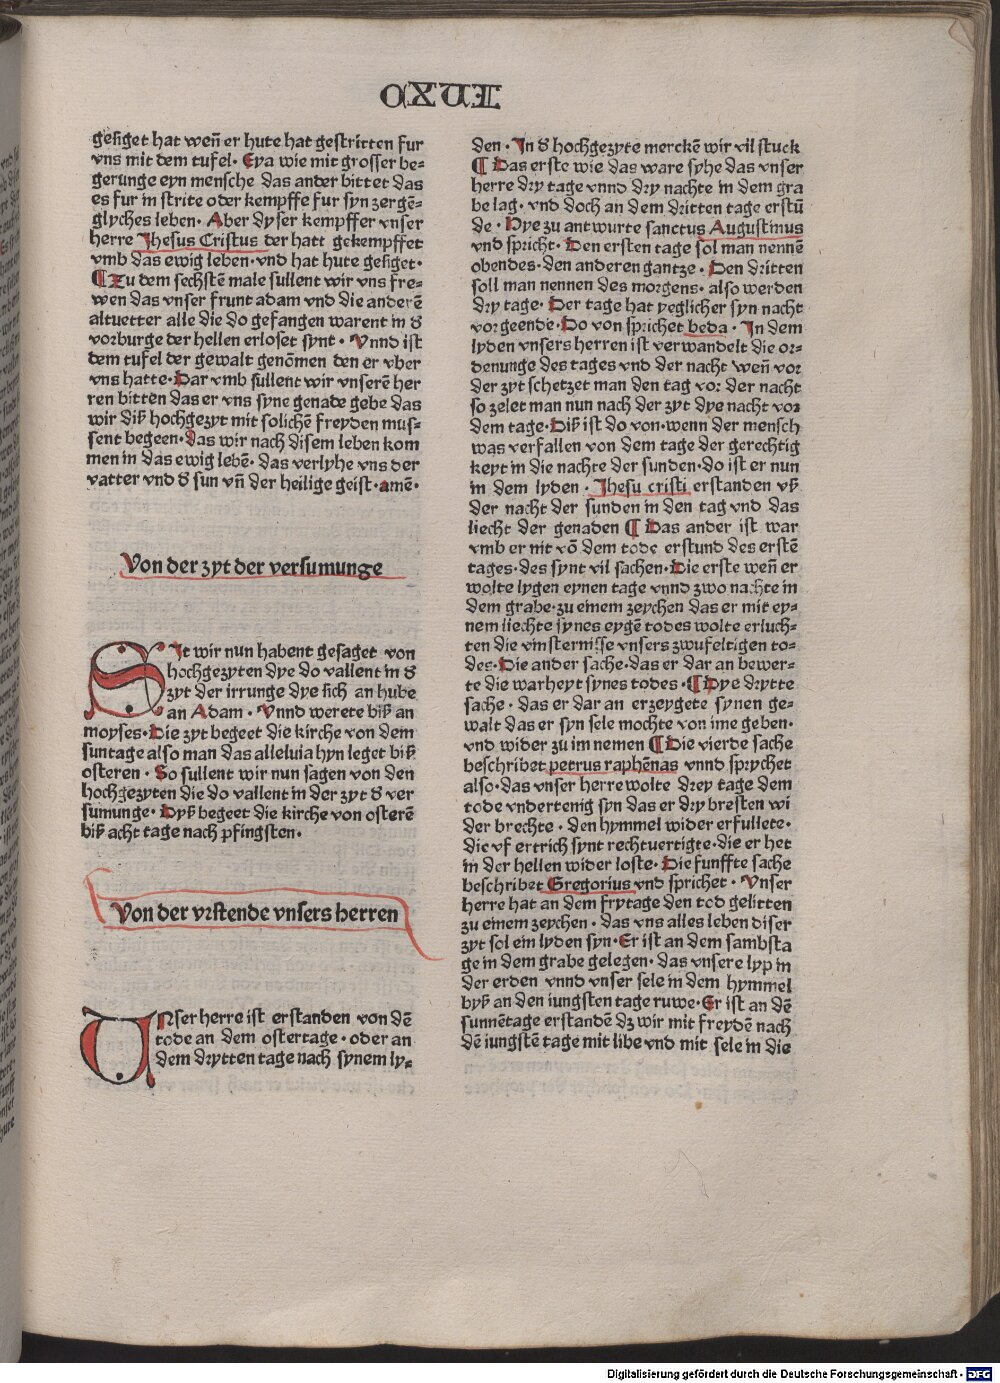 CXVI
gesiget hat wen̄ er hute hat gestritten fur
vns mit dem tufel· Eya wie mit grosser be⸗
gerunge eyn mensche das ander bittet das
es fur in strite oder kempffe fur syn zergē⸗
glyches leben· Aber dyser kempffer vnser
herre Jhesus Cristus der hatt gekempffet
vmb das ewig leben· vnd hat hute gesiget·
¶ Zu dem sechstē male sullent wir vns fre⸗
wen das vnser frunt adam vnd die anderē
altuetter alle die do gefangen warent in d̕
vorburge der hellen erloset synt · Vnnd ist
dem tufel der gewalt genōmen den er vber
vns hatte· Dar vmb sullent wir vnserē her
ren bitten das er vns syne genade gebe das
wir diß hochgezyt mit solichē freyden mus⸗
sent begeen· das wir nach disem leben kom
men in das ewig lebē· das verlyhe vns der
vatter vnd d̕ sun vn̄ der heilige geist· amē·
Von der zyt der versumunge
Sit wir nun habent gesaget von
hochgezyten dye do vallent in d̕
zyt der irrunge dye sich an hube
an Adam · Vnnd werete biß an
moyses· Die zyt begeet die kirche von dem
suntage also man das alleluia hyn leget biß
osteren · So sullent wir nun sagen von den
hochgezyten die do vallent in der zyt d̕ ver
sumunge· Dyß begeet die kirche von osterē
biß acht tage nach pfingsten·
Von der vrstende vnsers herren
Unser herre ist erstanden von dē
tode an dem ostertage · oder an
dem drytten tage nach synem ly⸗
den · Jn d̕ hochgezyte merckē wir vil stuck
¶ Das erste wie das ware syhe das vnser
herre dry tage vnnd dry nachte in dem gra
be lag· vnd doch an dem dritten tage erstū
de · Dye zu antwurte sanctus Augustinus
vnd spricht· Den ersten tage sol man nennē
obendes· den anderen gantze · Den dritten
soll man nennen des morgens· also werden
dry tage· Der tage hat yeglicher syn nacht
vorgeende· Do von sprichet beda · Jn dem
lyden vnsers herren ist verwandelt die or⸗
denunge des tages vnd der nacht wen̄ vor
der zyt schetzet man den tag vor der nacht
so zelet man nun nach der zyt dye nacht vor
dem tage· Diß ist do von· wenn der mensch
was verfallen von dem tage der gerechtig
keyt in die nachte der sunden· do ist er nun
in dem lyden · Jhesu cristi erstanden vß
der nacht der sunden in den tag vnd das
liecht der genaden ¶ Das ander ist war
vmb er nit vō dem tode erstund des erstē
tages· des synt vil sachen· Die erste wen̄ er
wolte lygen eynen tage vnnd zwo nachte in
dem grabe· zu einem zeychen das er mit ey⸗
nem liechte synes eygē todes wolte erluch⸗
ten die vinsternisse vnsers zwufeltigen to⸗
des· Die ander sache· das er dar an bewer⸗
te die warheyt synes todes · ¶ Dye drytte
sache · das er dar an erzeygete synen ge⸗
walt das er syn sele mochte von ime geben·
vnd wider zu im nemen ¶ Die vierde sache
beschribet petrus raphēnas vnnd sprychet
also· das vnser herre wolte drey tage dem
tode vndertenig syn das er dry bresten wi
der brechte · den hymmel wider erfullete·
die vf ertrich synt rechtuertigte· die er het
in der hellen wider loste· Die funffte sache
beschribet Gregorius vnd sprichet · Vnser
herre hat an dem frytage den tod gelitten
zu einem zeychen · das vns alles leben diser
zyt sol ein lyden syn· Er ist an dem sambsta
ge in dem grabe gelegen· das vnsere lyp in
der erden vnnd vnser sele in dem hymmel
byß an den iungsten tage ruwe· Er ist an dē
sunnētage erstandē dz wir mit freydē nach
dē iungstē tage mit libe vnd mit sele in die
Digitalisierung gefördert durch die Deutsche Forschungsgemeinschaft - DFG